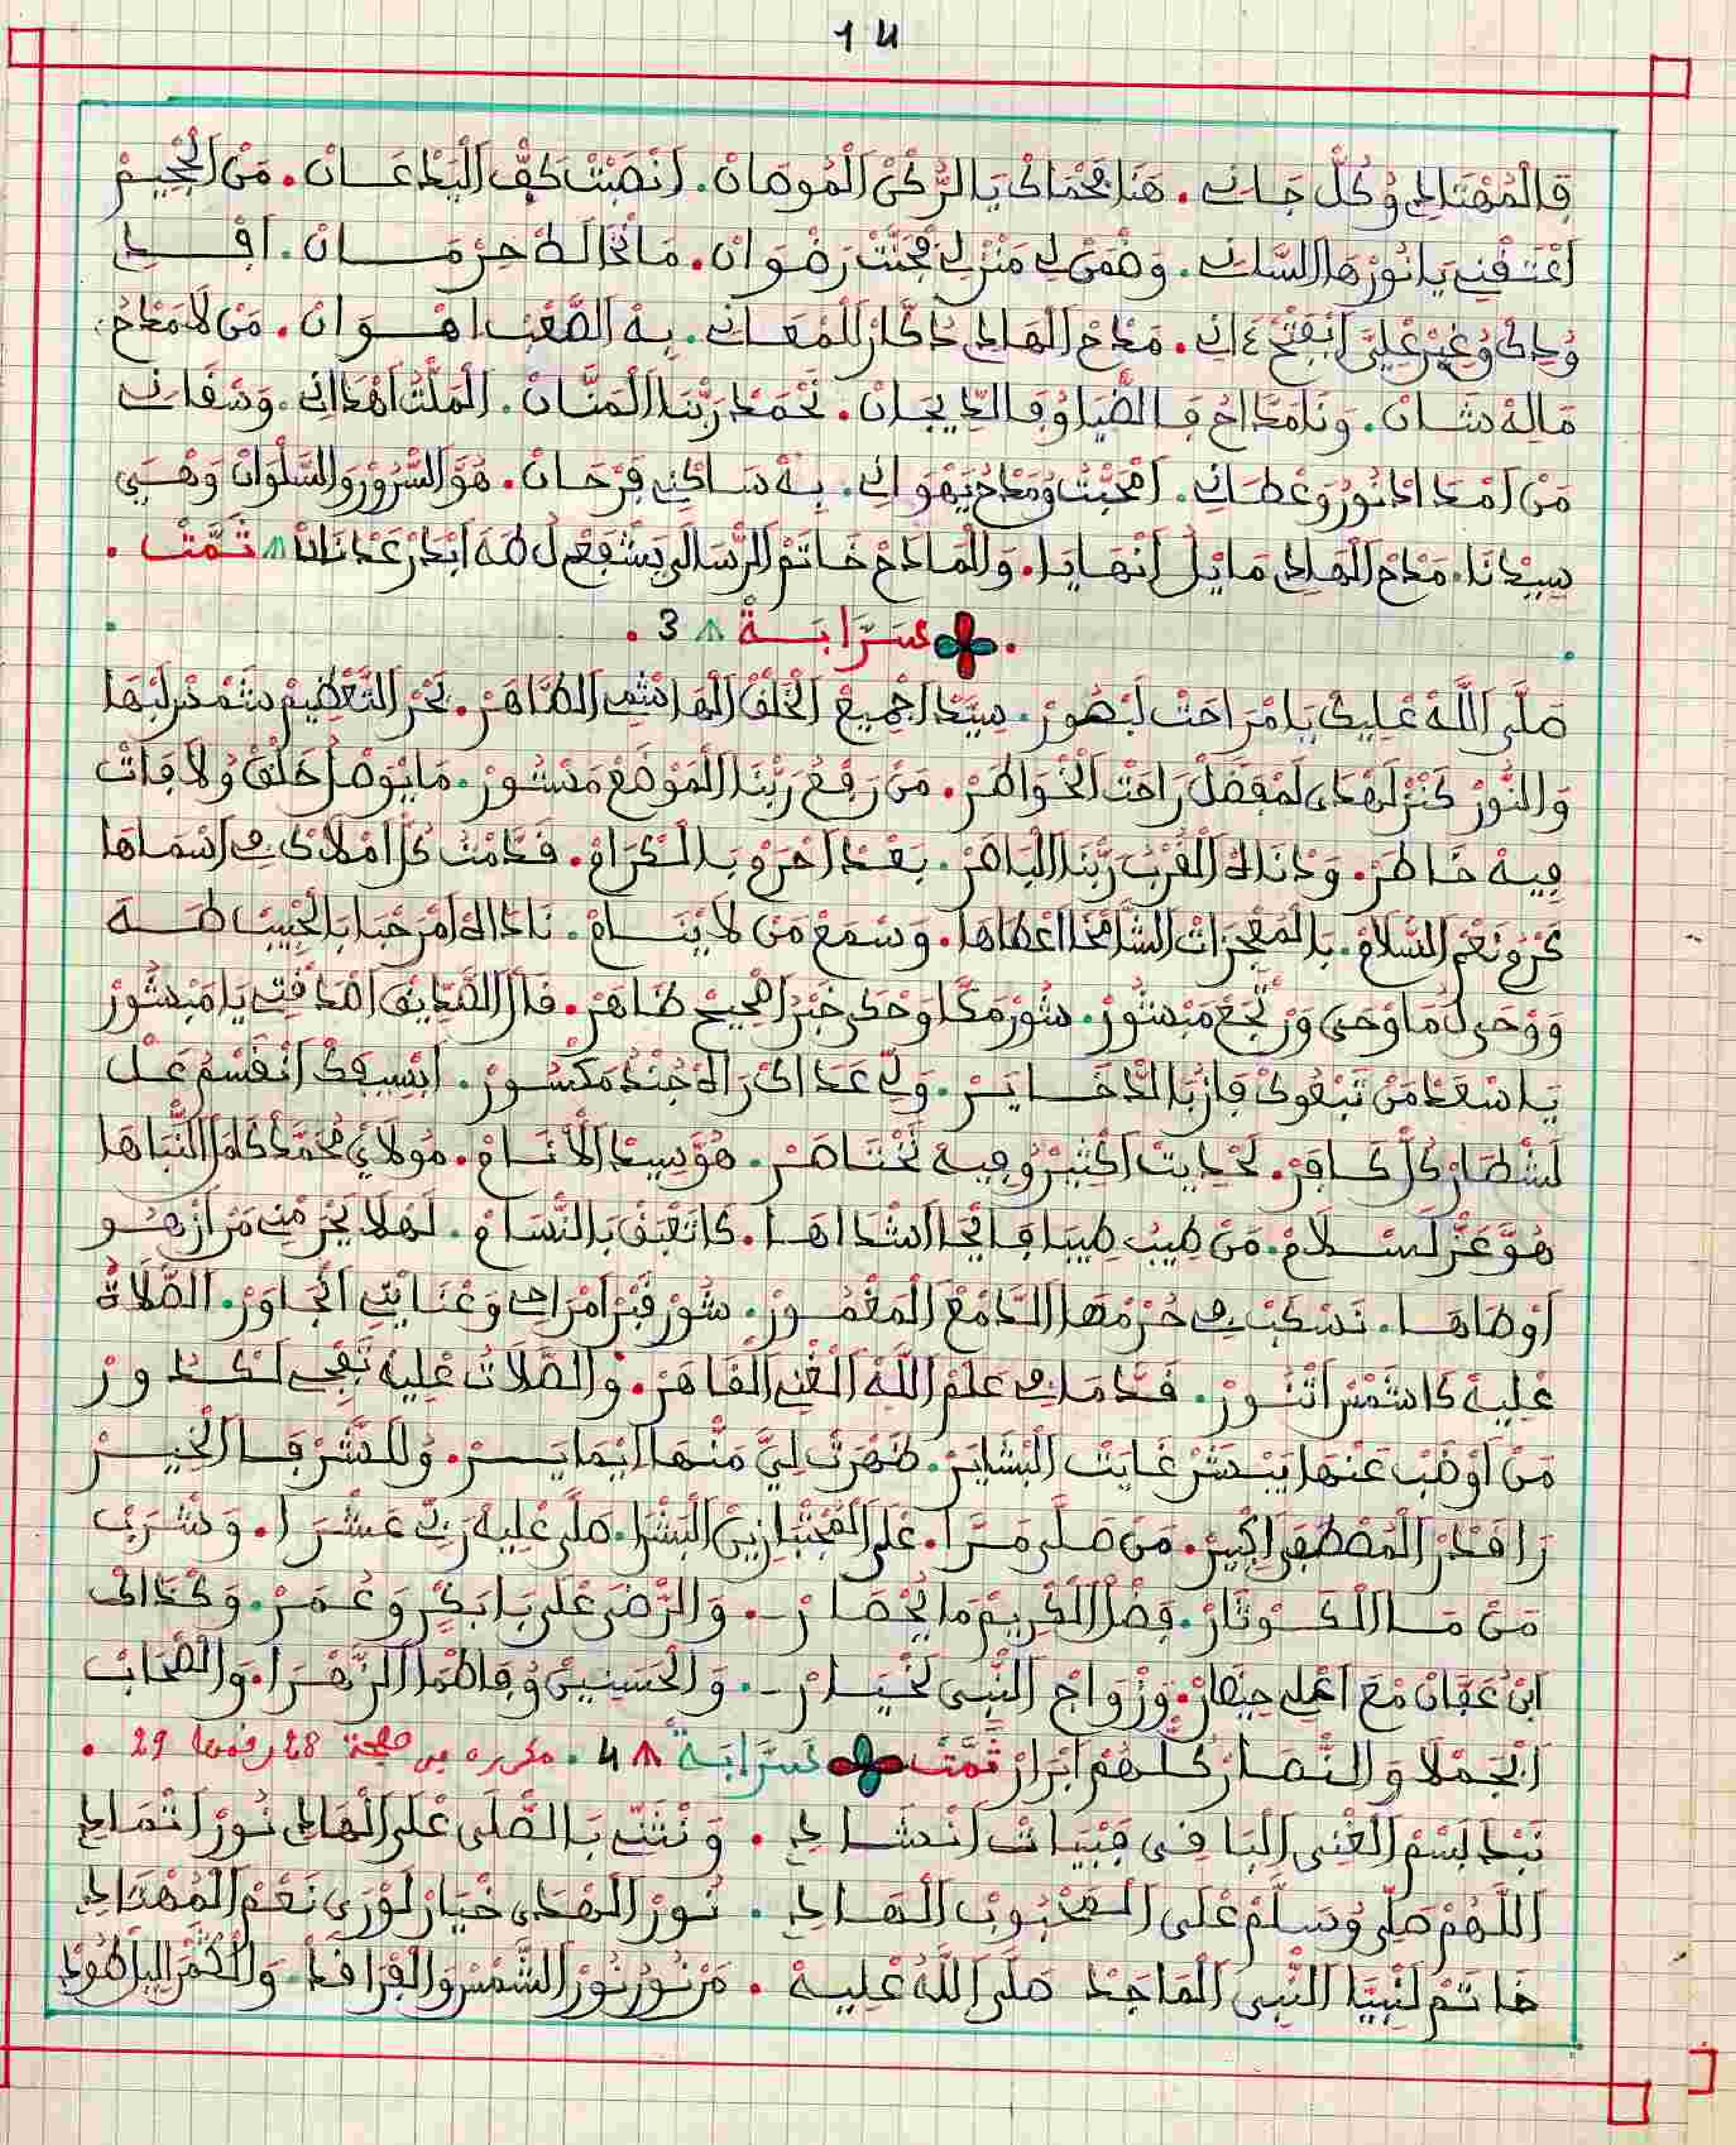 14
فالمهتادي وكل جاني . هنا بحماك يا الركن الموصان . انصبت كف اليد عسان . من الجحيم
اعتقني يا نورها السلني . وضمن لي منزلي بجنت رضوان . ما نخالط حرمان . افدي
ودك وغير عليّ ابفتح داني . مدح الهادي دكار للمعاني . به الصعب اهوان . من لا مدح
ماله شان . ونا مداح في الضيا وفي الديجان . نحمد ربنا المنان . الملت اهداني . وسقاني
من امداد نور وعطاني . امحبت ومدح يهواني . به ساكني فرحان . هو السرور والسلوان وهبي
سيدنا . مدح الهادي مايل انهايا . والمادح خاتم الرسالى يشفع ل طه ابدر عدنان تمت .
سرّابة 3 .
صلى الله عليك يا مراحت لبصور . سيد اجميع الخلق الهاشمي الطاهر . بحر التعظيم شمس لبها
والنور كنز لهدى لمفضل راحت الخواطر . من رفع ربنا الموضع مستور . ما يوصل خلق ولا فات
فيه خاطر . ودناه القرب ربنا الباهر . بعد احرم بالكرام . قدمت كل املاك في اسماها
بحرو نعم السلام . بالمعجزات الشامخا اعطاها . وسمع من لا ينام . ناداه امرحبا بالحبيب طه
ووحى ل ما وحى ورجع مبشور . شور مكا وحكى خبر اصحيح ظاهر . قال الصديق اصدقت يا مبشور
يا سعد من تبعوك فاز بالدخاير . ولي عداك راه جند مكسور . ابسيفك انقسم عل
لشطار كل كافر . لحديت اكثير وفيه نختاصر . هو سيد الانام . مولاي محمد كامل النباها
هو عز لسلام . من طيب طيبا فايجا اشداها . كا تعبق بالنسام . لهلا يحرمني من ازهو
اوطاها . نسكب في حرمها الدمع المغمور . شور قبر امراحي وعنايتي انجاور . الصلاة
عليه كا شمس اتنور . قدما في علم الله الغني القاهر . والصلات عليه تفجي لكدور
من اوضب عنها يبشر غايت البشاير . ظهرت ليّ منها ايمايسر . وللشرفا الخير
را قدر المصطفى اكبير . من صلى مرا . على المجتبا زين البشرا . صلى عليه ربي عشرا . وشربت
من ما الكوثار . فضل الكريم ما يحصار . والرضى على بابكر وعمر . وكذاك
ابن عفان مع اعلي حيضار . وزواج النبي لخيار . والحسنين وفاطما الزهرا . والصحاب
الجملا والنصار كلهم ابرار تمت سرّابة 4 . مكرره في صفحة 28 رقمها 29 .
نبدا بسم الغني الباقي فبيات انشادي . ونثني بالصلى على الهادي نور اتمادي
اللهم صلي وسلم على المحبوب الهادي . نور الهدى خيار لورى نعم المهتادي
خاتم لنبيا النبي الماجد صلى الله عليه . من نور نور الشمس والفرافد